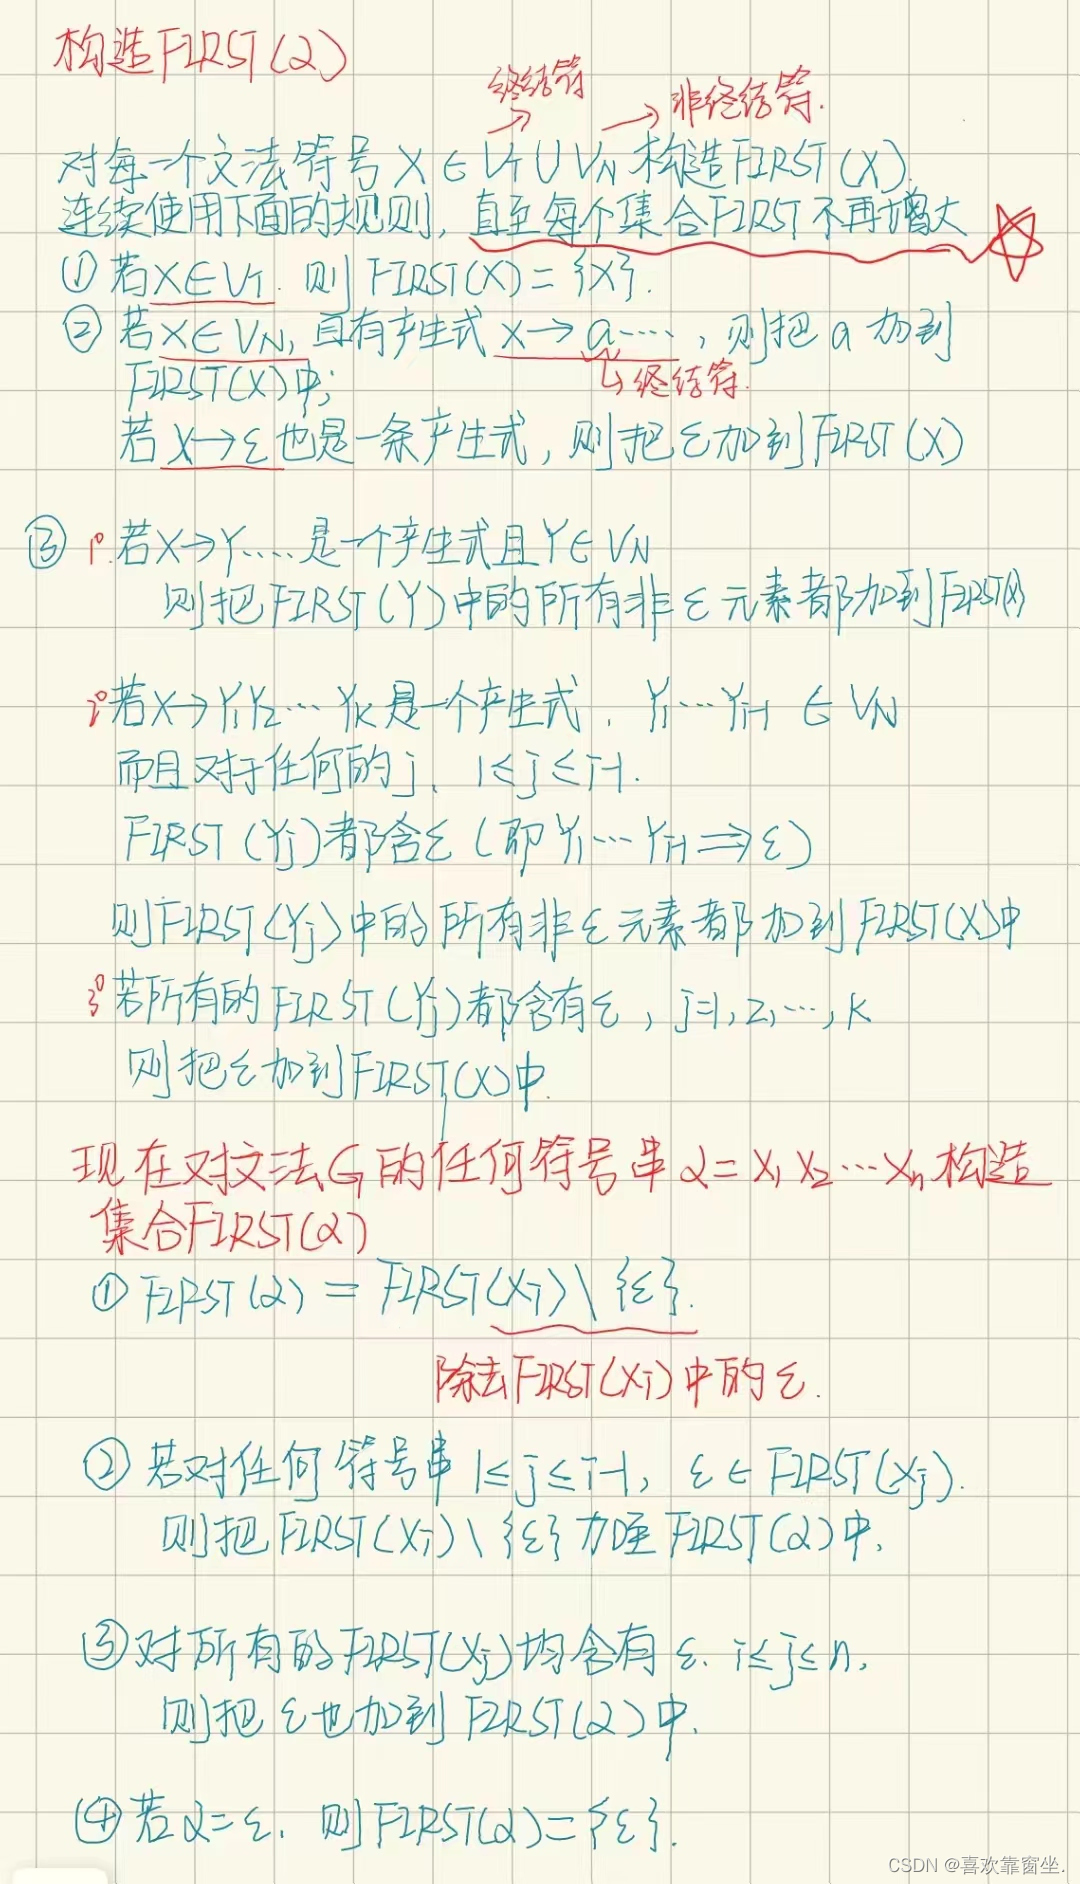 构造FIRST(α)
终结符
非终结符.
对每一个文法符号 X ∈ VT ∪ VN 构造FIRST(X).
连续使用下面的规则, 直至每个集合FIRST不再增大
① 若X∈VT. 则 FIRST(X) = {X}.
② 若X∈VN, 且有产生式 X→a····, 则把a加到
FIRST(X)中;
终结符.
若X→ε也是一条产生式, 则把ε加到FIRST(X)
③ 1°. 若X→Y.....是一个产生式且Y∈VN
则把FIRST(Y)中的所有非ε元素都加到FIRST(X)
2° 若X→Y1Y2···YK是一个产生式. Y1···Yi-1 ∈ VN
而且对于任何的j、1≤j≤i-1.
FIRST(Yj)都含ε(即Y1···Yi-1⇒ε)
则FIRST(Yj)中的所有非ε元素都加到FIRST(X)中
3° 若所有的FIRST(Yj)都含有ε, j=1,2,···,K
则把ε加到FIRST(X)中.
现在对文法G的任何符号串α=X1X2···Xn构造
集合FIRST(α)
① FIRST(α) = FIRST(Xi)\{ε}.
除去FIRST(Xi)中的ε.
② 若对任何符号串1≤j≤i-1, ε∈FIRST(Xj).
则把FIRST(Xi)\{ε}加至FIRST(α)中.
③ 对所有的FIRST(Xj)均含有ε. i≤j≤n.
则把ε也加到FIRST(α)中.
④ 若α=ε. 则FIRST(α)={ε}.
CSDN @喜欢靠窗坐.